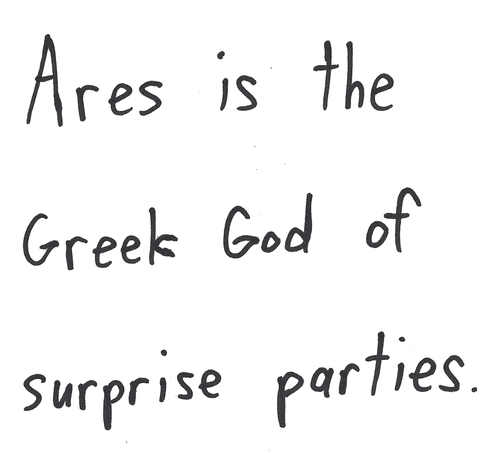 Ares is the
Greek God of
surprise parties.